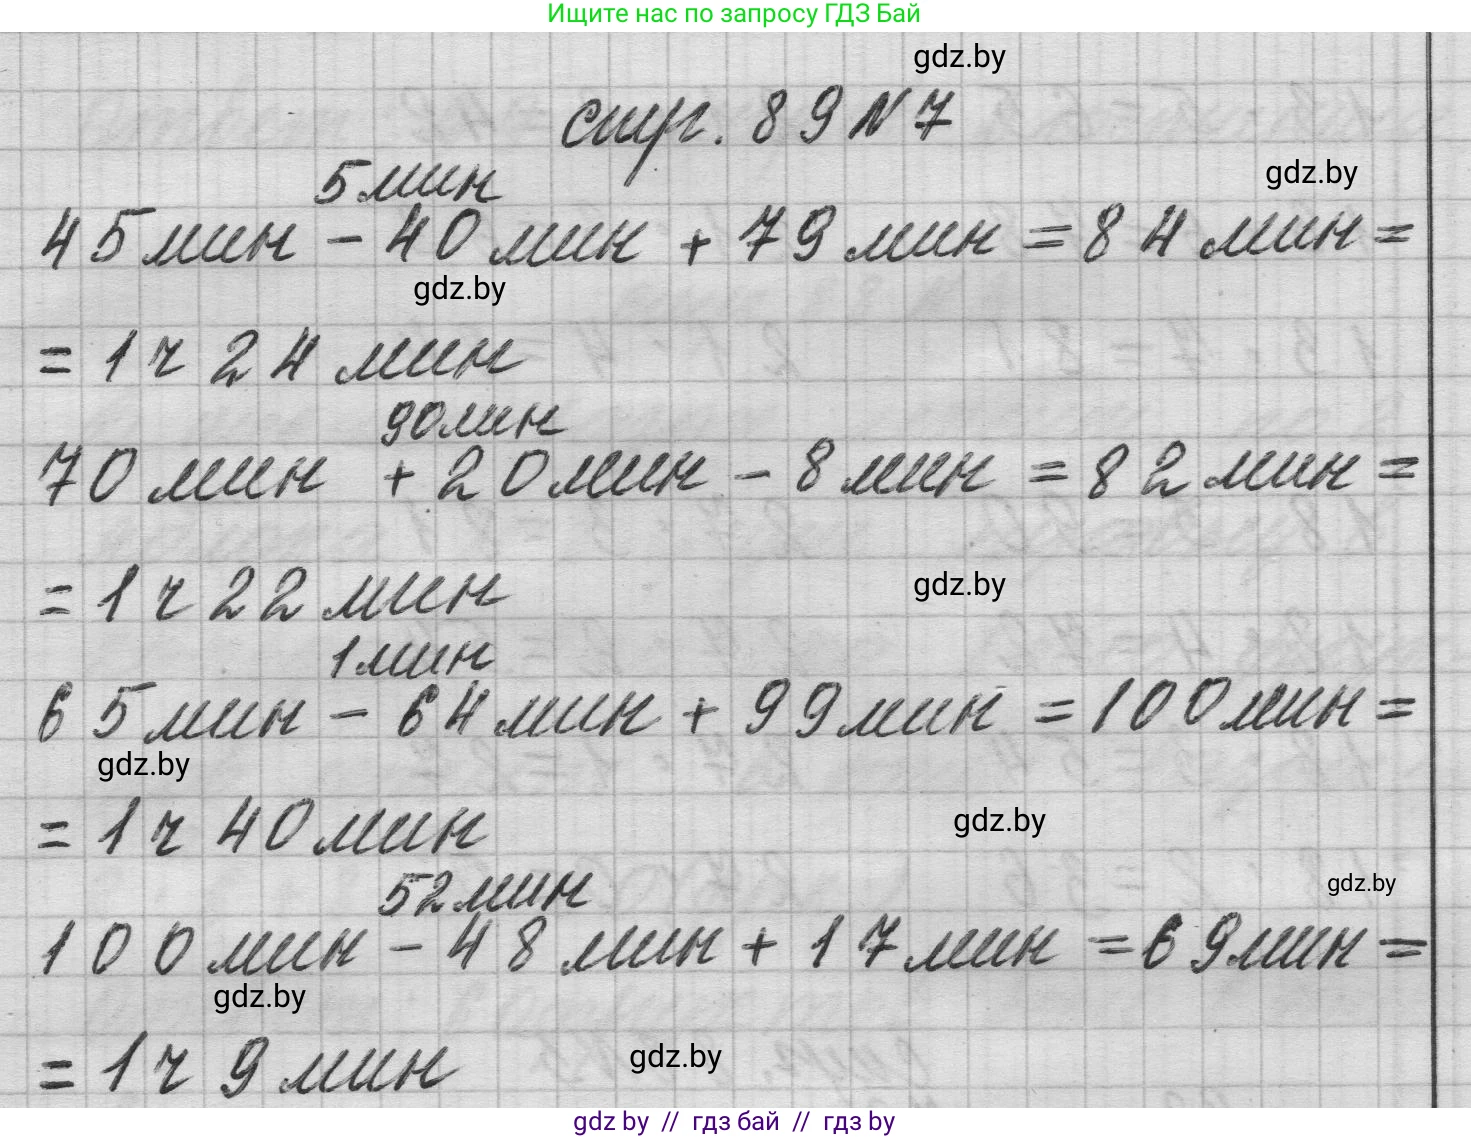 Ищите нас по запросу ГДЗ Бай
gdz.by
стр. 89 N 7
gdz.by
5мин
45мин - 40мин + 79мин = 84мин =
gdz.by
= 1ч 24 мин
90мин
70мин + 20мин - 8мин = 82мин =
= 1ч 22мин
gdz.by
1мин
65мин - 64мин + 99мин = 100мин =
gdz.by
= 1ч 40мин
gdz.by
52мин
gdz.by
100мин - 48мин + 17мин = 69мин =
gdz.by
= 1ч 9мин
gdz.by
gdz by // гдз бай // гдз by